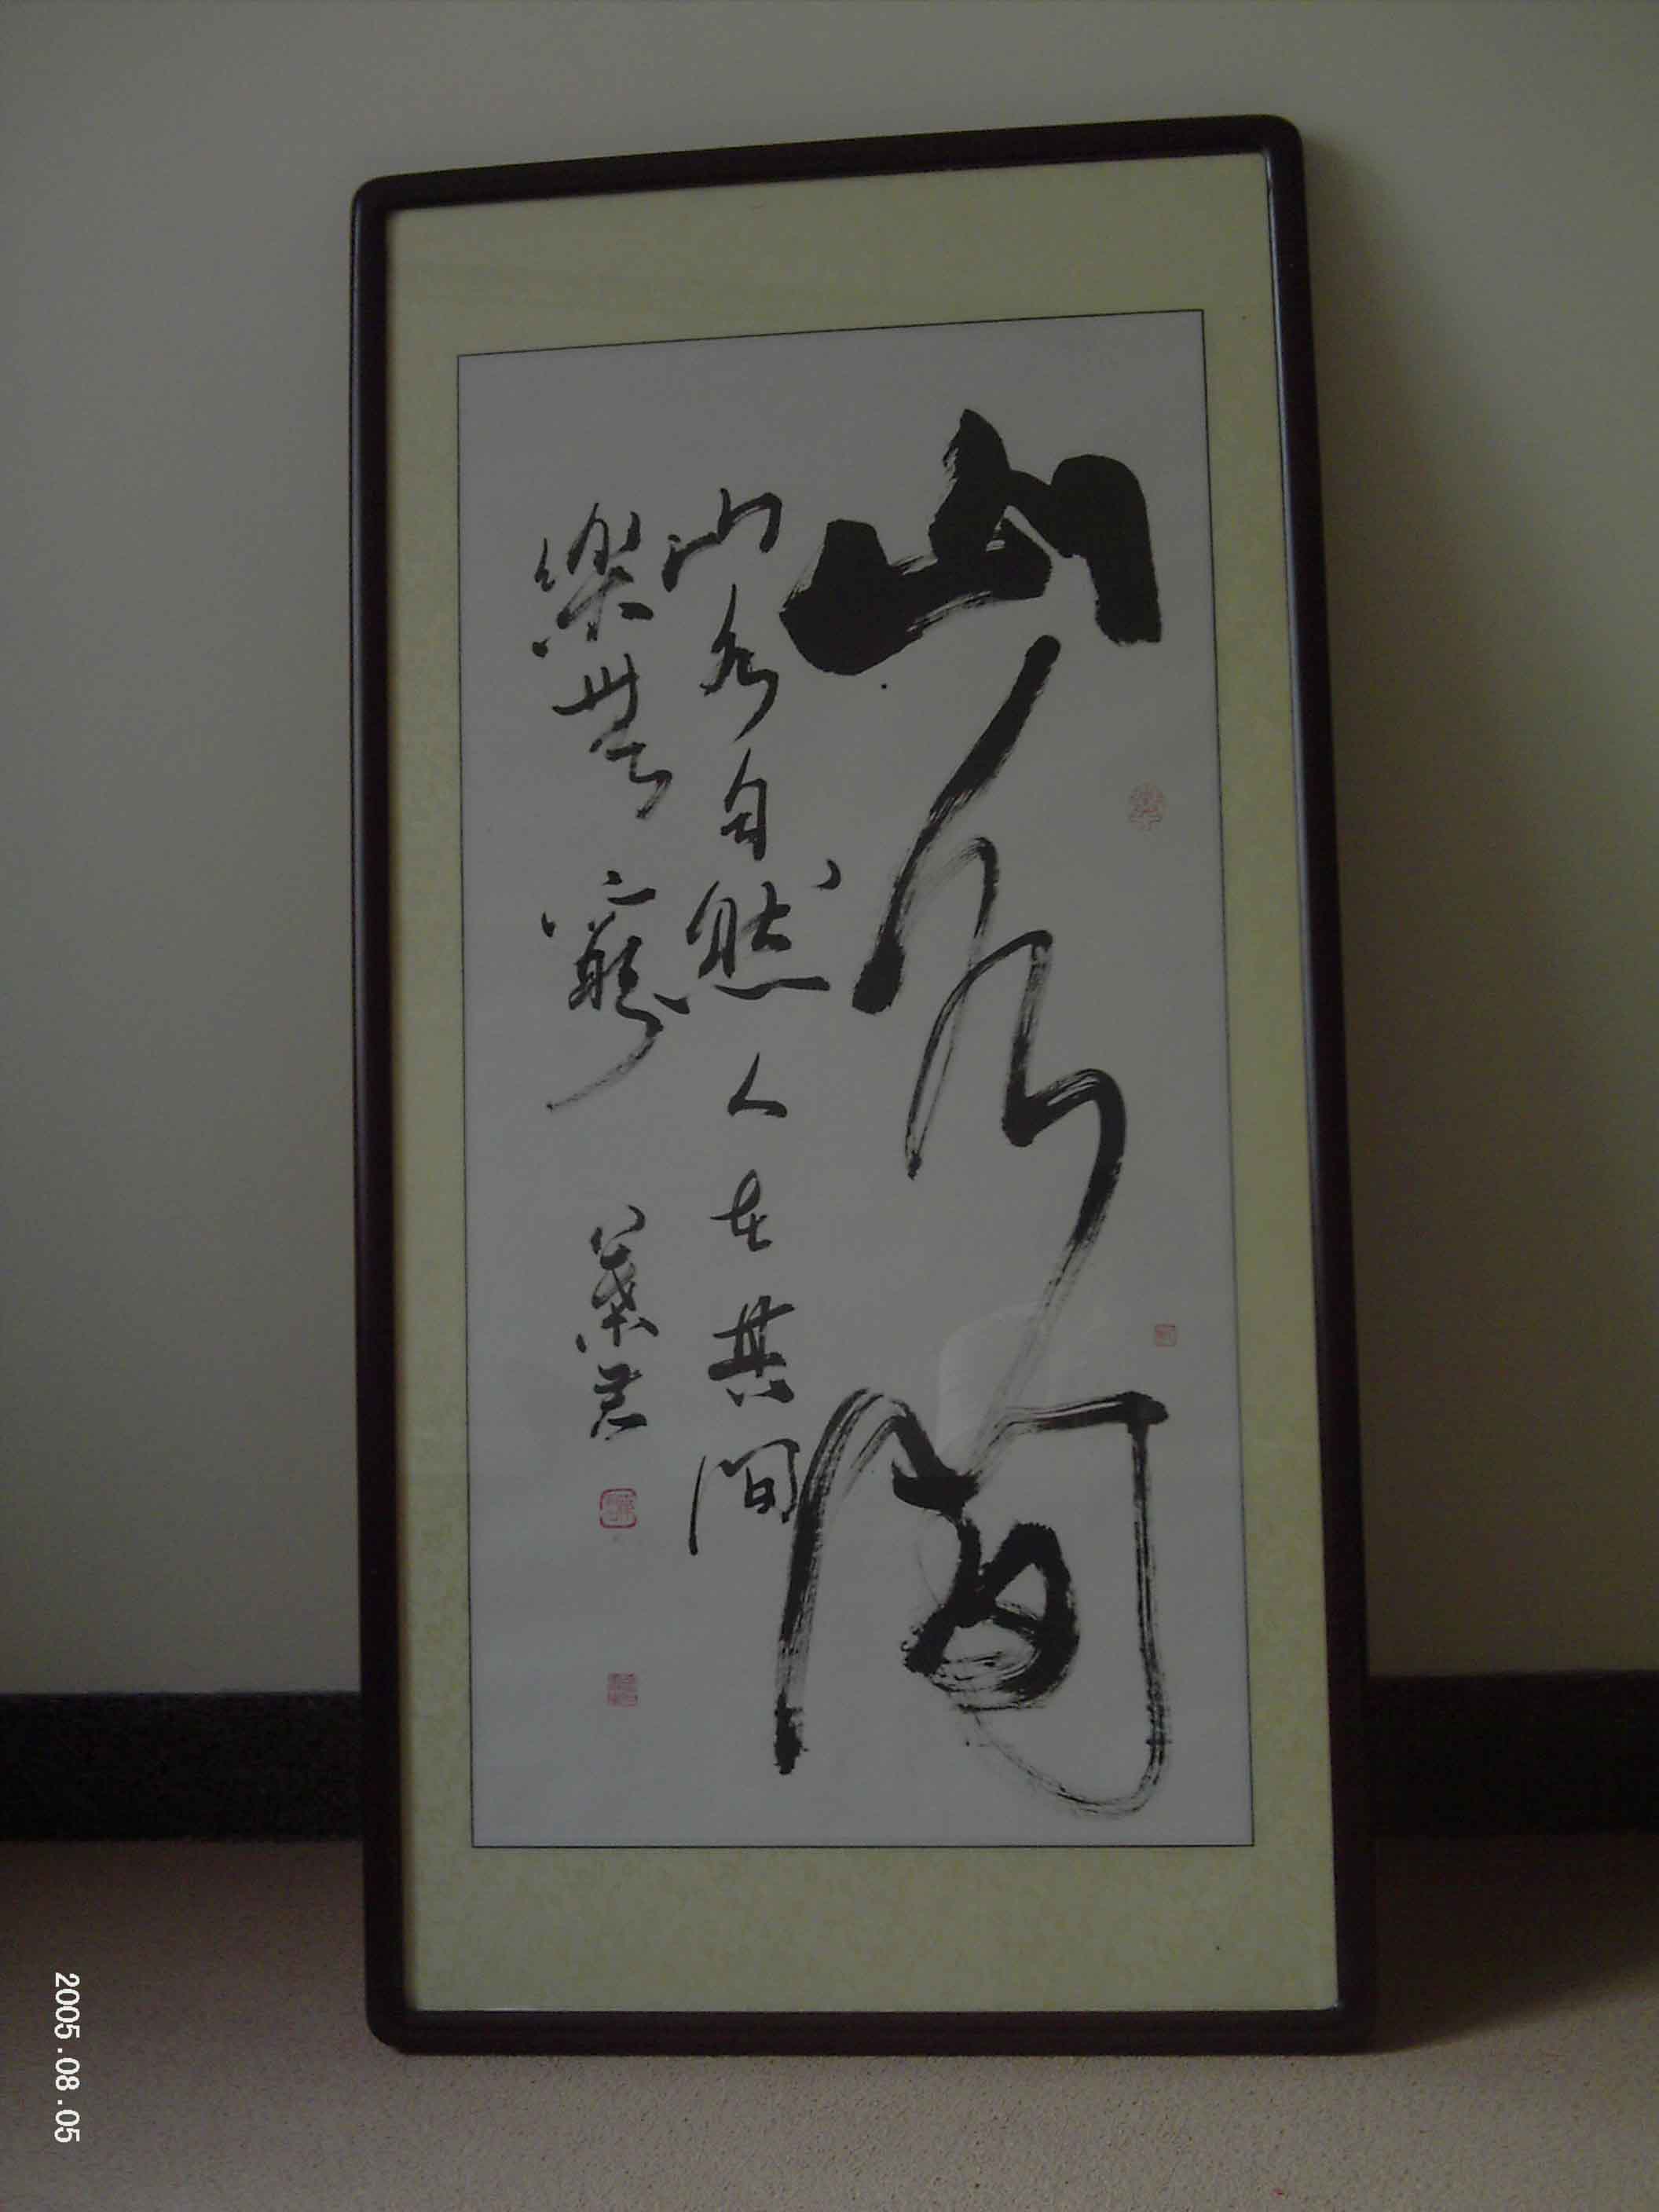 山水間
山水自然人在其間
樂無窮
葉君
2005.08.05